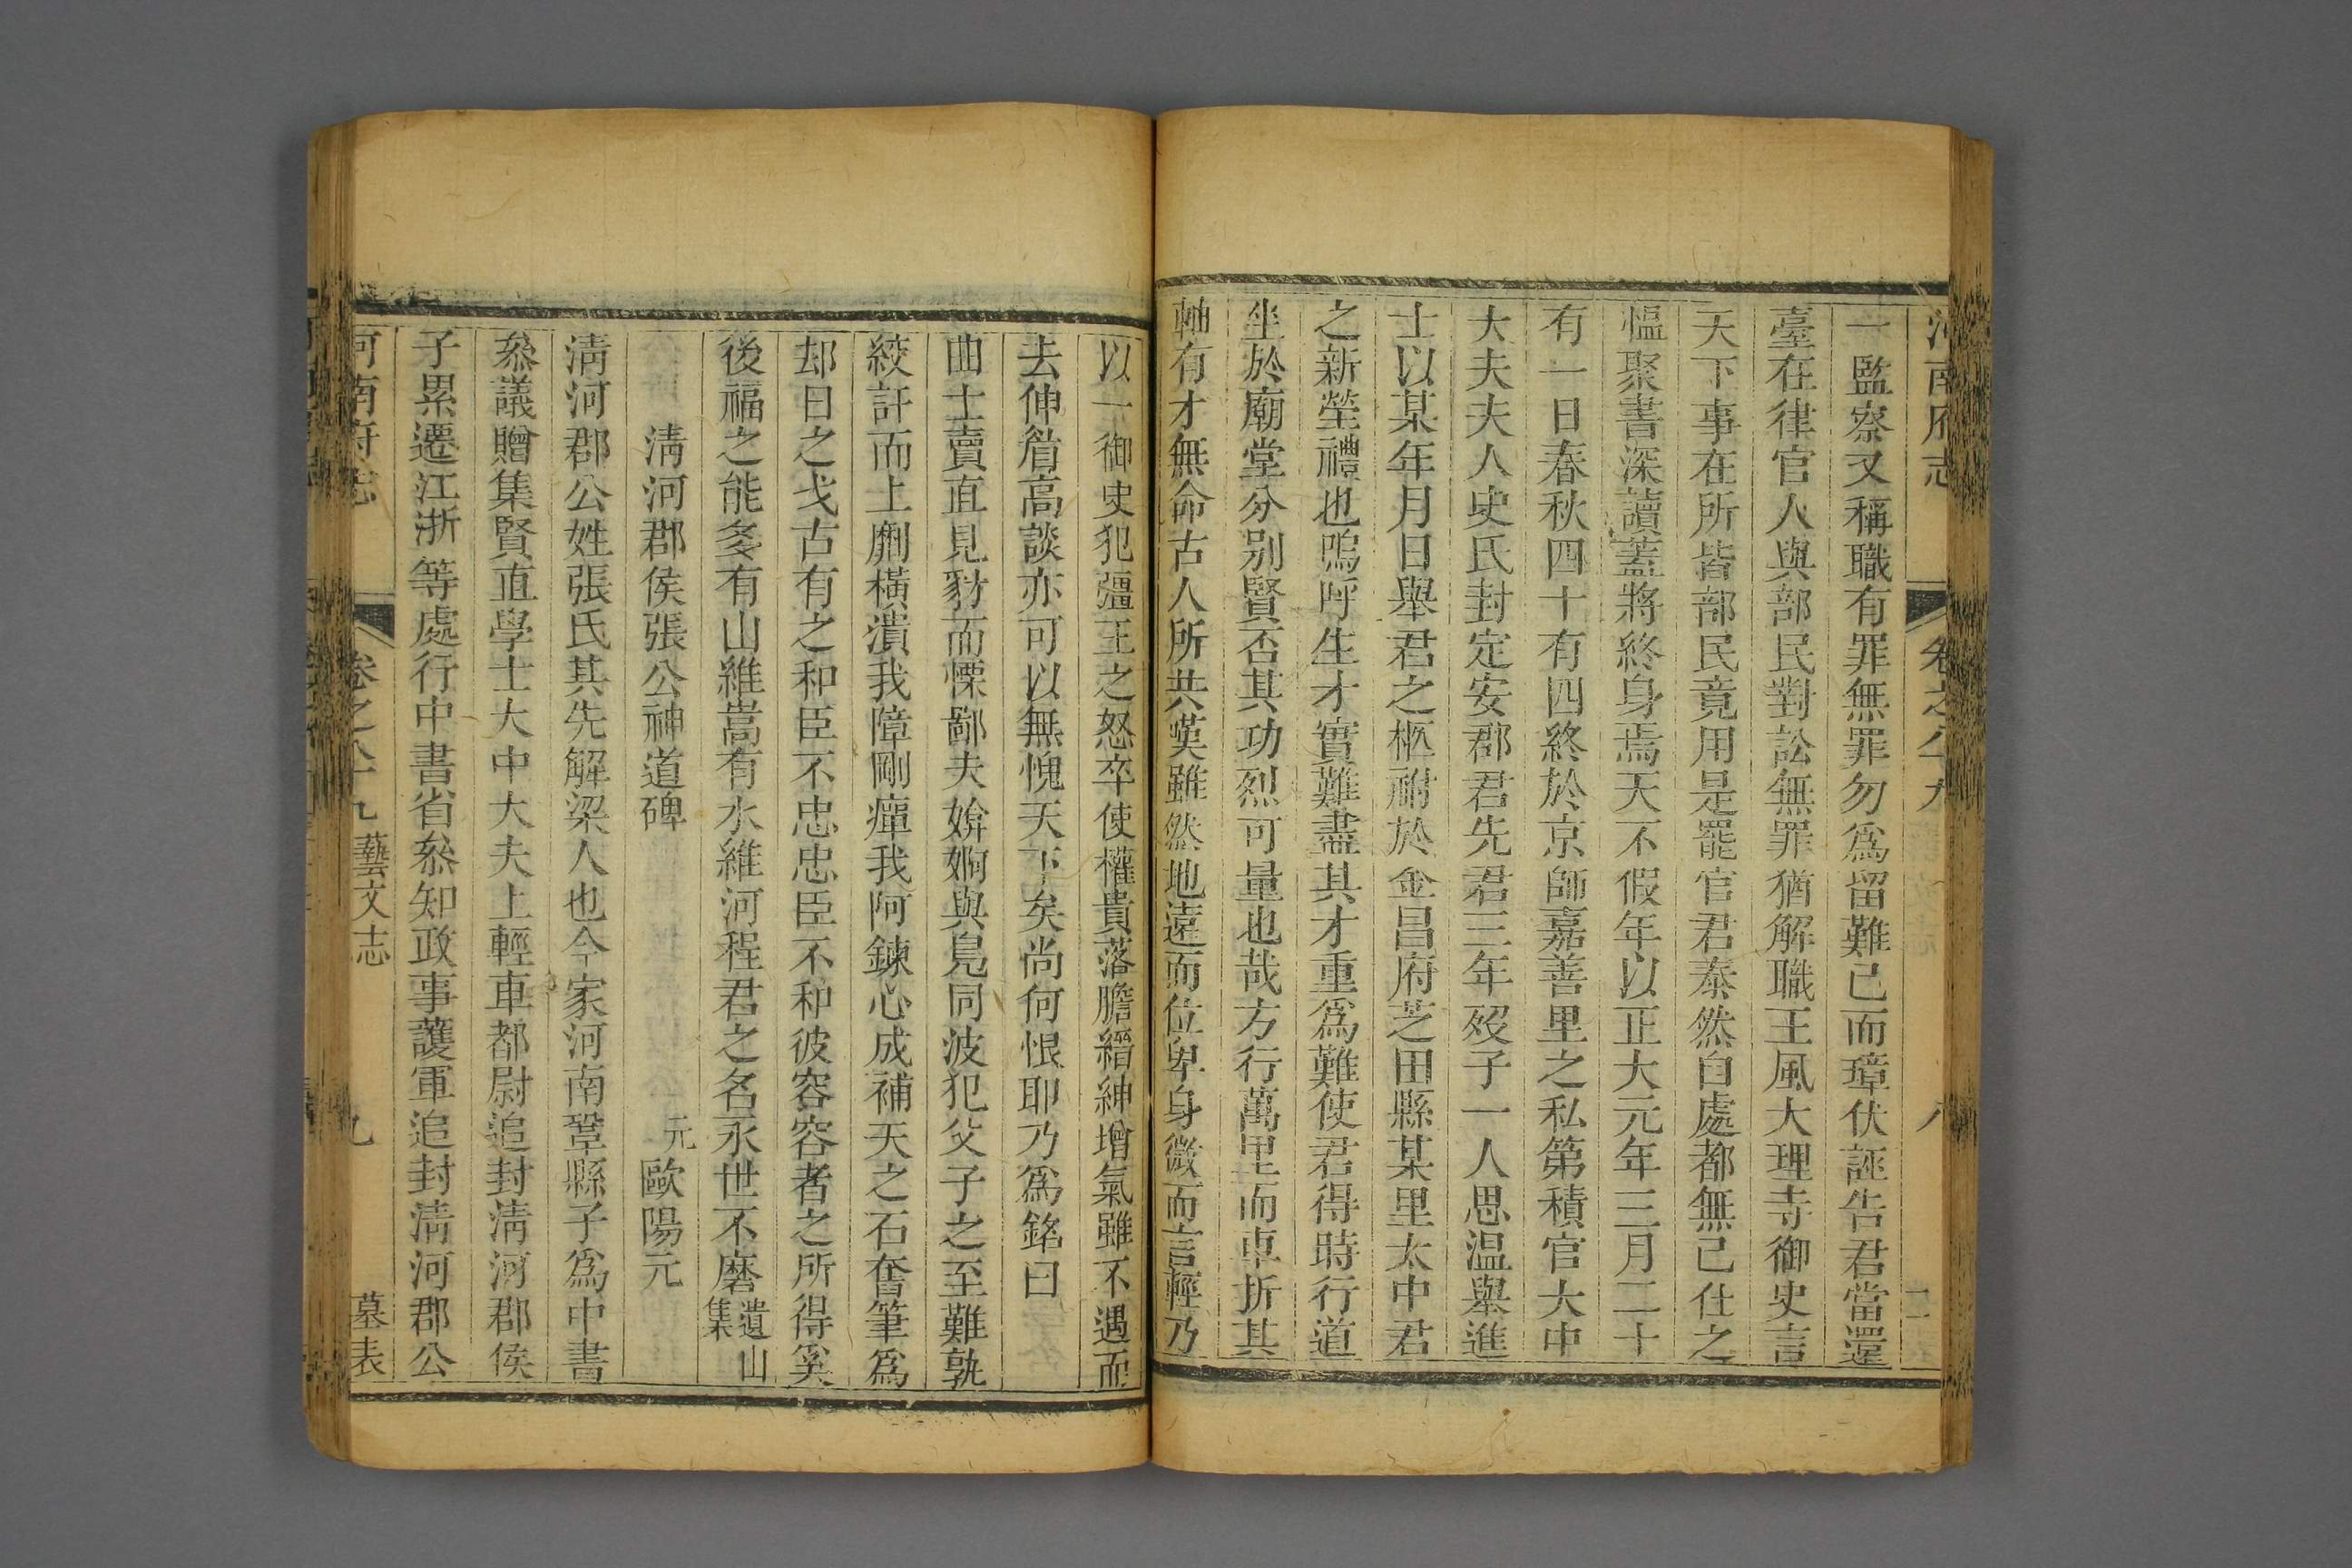 河南府志 卷之八十九 八
一監察又稱職有罪無罪勿爲留難已而璋伏誣告君當還
臺在律官人與部民對訟無罪猶解職王風大理寺御史言
天下事在所皆部民竟用是罷官君泰然自處都無已仕之
慍聚書深讀蓋將終身焉天不假年以正大元年三月二十
有一日春秋四十有四終於京師嘉善里之私第積官大中
大夫夫人史氏封定安郡君先君三年歿子一人思温舉進
士以某年月日舉君之柩祔於金昌府芝田縣某里太中君
之新塋禮也嗚呼生才實難盡其才重爲難使君得時行道
坐於廟堂分别賢否其功烈可量也哉方行萬里而車折其
軸有才無命古人所共嘆雖然地遠而位卑身微而言輕乃
以一御史犯彊王之怒卒使權貴落膽縉紳增氣雖不遇而
去伸眉高談亦可以無愧天下矣尚何恨耶乃爲銘曰
曲士賣直見豺而慄鄙夫媕婀與鳧同波犯父子之至難孰
絞訐而上劘橫潰我障剛癉我阿鍊心成補天之石奮筆爲
却日之戈古有之和臣不忠忠臣不和彼容容者之所得奚
後福之能多有山維嵩有水維河程君之名永世不磨 遺山集
清河郡侯張公神道碑 元歐陽元
清河郡公姓張氏其先解梁人也今家河南鞏縣子爲中書
叅議贈集賢直學士大中大夫上輕車都尉追封清河郡侯
子累遷江浙等處行中書省叅知政事護軍追封清河郡公
河南府志 卷之八十九 藝文志 九 墓表